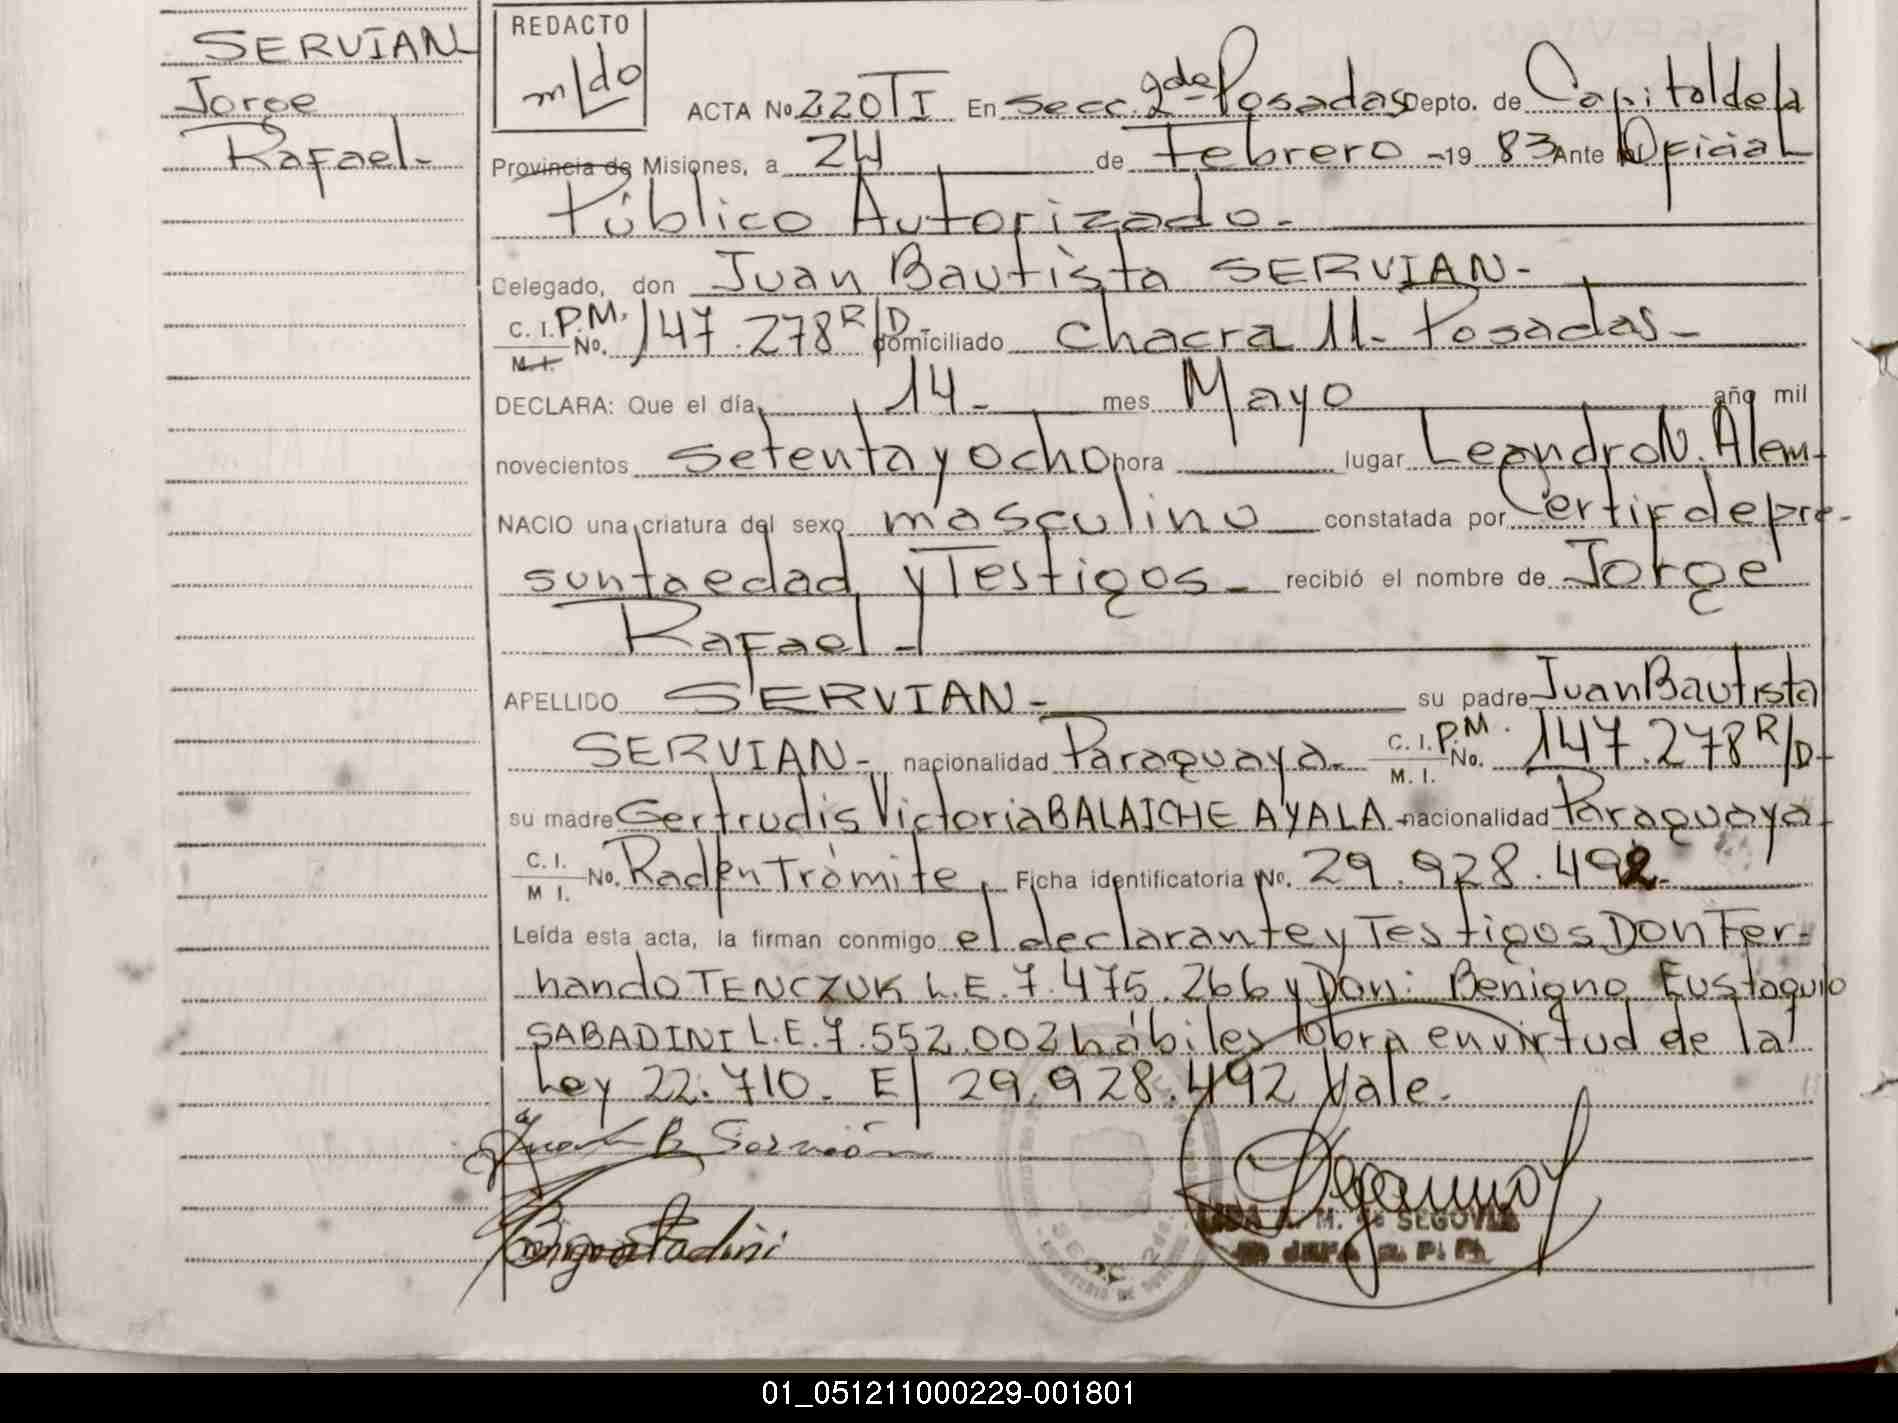 SERVIAN
Jorge
Rafael-
REDACTO
mLdo
ACTA No. 220 TI En Secc. 2da Posadas Depto. de Capital de la
Provincia de Misiones, a 24 de Febrero -19 83 Ante mi Oficial
Público Autorizado.-
Delegado, don Juan Bautista SERVIAN-
C. I. P.M. M. I. No. 147.278 R/D- domiciliado Chacra 11- Posadas-
DECLARA: Que el día 14- mes Mayo año mil
novecientos setenta y ocho hora lugar Leandro N. Alem-
NACIO una criatura del sexo masculino constatada por Certif de pre-
sunta edad y Testigos- recibió el nombre de Jorge
Rafael-
APELLIDO SERVIAN- su padre Juan Bautista
SERVIAN- nacionalidad Paraguaya- C. I. P.M. M. I. No. 147.278 R/D-
su madre Gertrudis Victoria BALAICHE AYALA- nacionalidad Paraguaya-
C. I. M I. No. Rad/en Trámite, Ficha identificatoria No. 29.928.492-
Leída esta acta, la firman conmigo el declarante y Testigos Don Fer-
nando TENCZUK L.E. 7.475.266 y Don: Benigno Eustaquio
SABADINI L.E. 7.552.002 hábiles Obra en virtud de la
Ley 22.710- El 29.928.492 Vale.
Juan B Servián
SECC 2da
M. de SEGOVIA
01_051211000229-001801